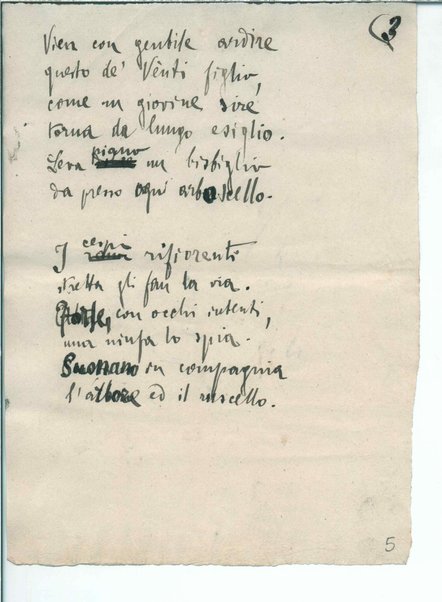 3
Vien con gentile ardire
questo de' Vènti figlio,
come un giovine sire
torna da lungo esiglio.
Leva pigno un bisbiglio
da presso ogni arboscello.
I cespi rifiorenti
stretta gli fan la via.
Forse, con occhi intenti,
una ninfa lo spia.
Suonano in compagnia
l'albore ed il ruscello.
5